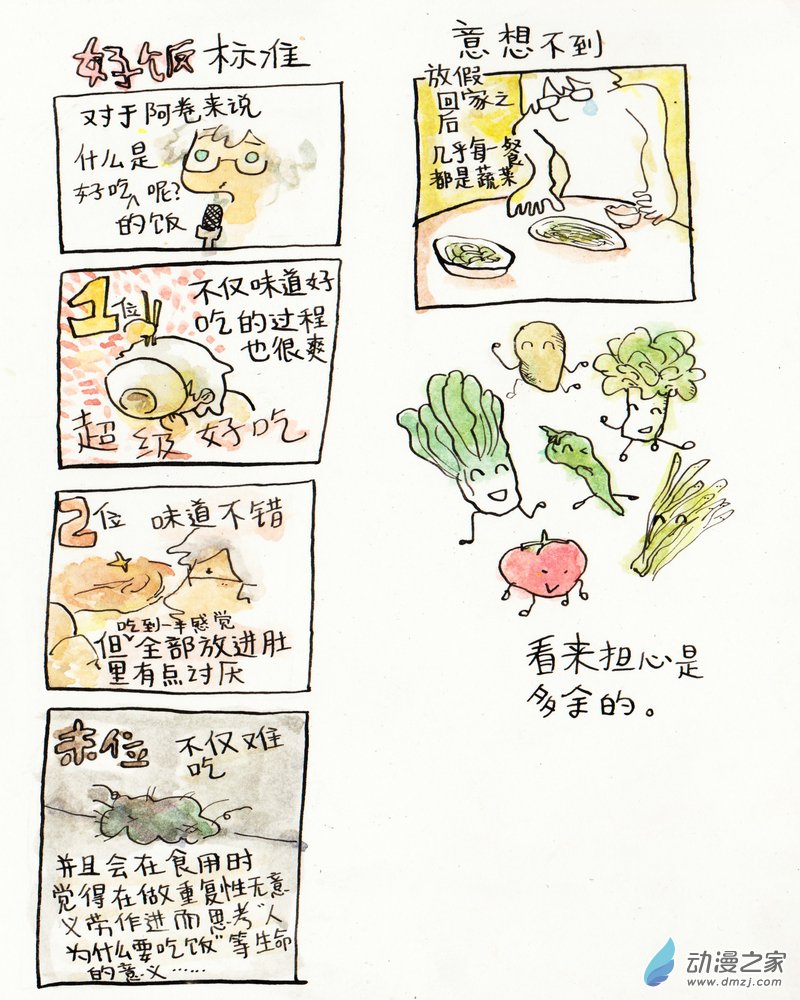 好饭标准
对于阿卷来说
什么是
好吃 呢?
的饭
1位
不仅味道好
吃的过程
也很爽
超级好吃
2位 味道不错
吃到一半感觉
但全部放进肚
里有点讨厌
末位 不仅难
吃
并且会在食用时
觉得在做重复性无意
义劳作进而思考“人
为什么要吃饭”等生命
的意义……
意想不到
放假
回家之
后
几乎每一餐
都是蔬菜
看来担心是
多余的。
动漫之家
www.dmzj.com